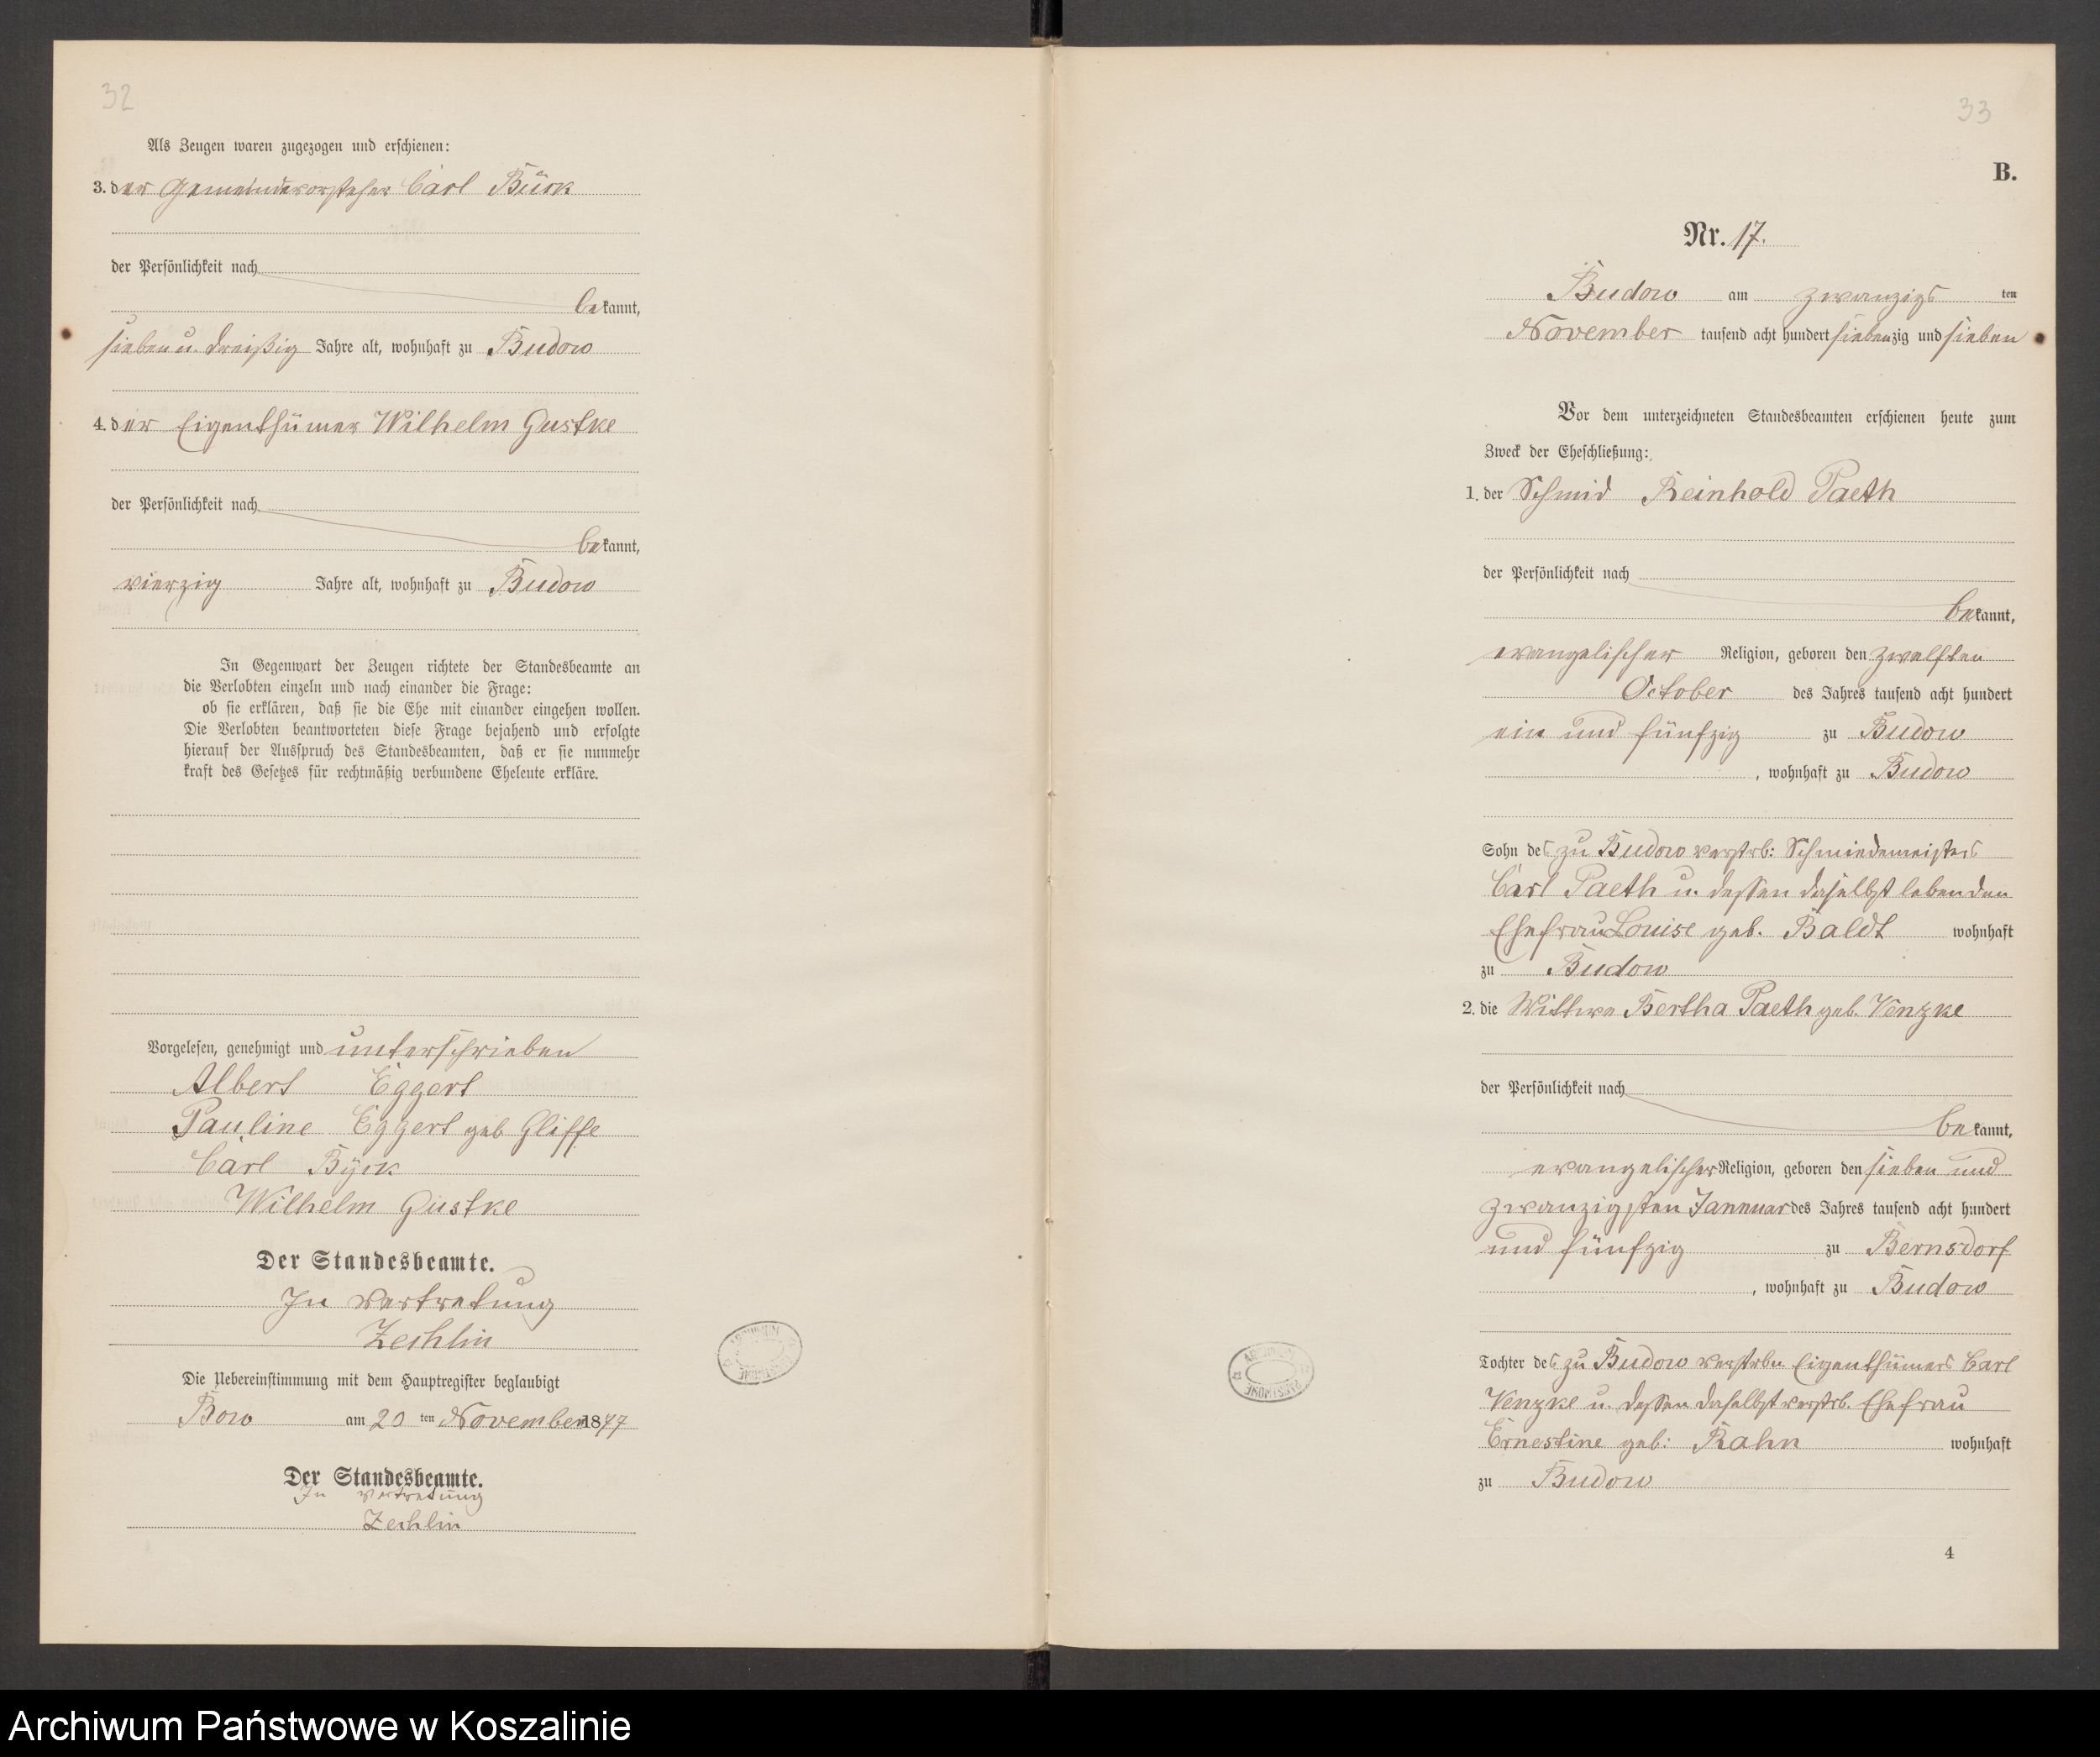 32
Als Zeugen waren zugezogen und erschienen:
3. der Gemeindevorsteher Carl Bürk
der Persönlichkeit nach
bekannt,
sieben u. dreißig Jahre alt, wohnhaft zu Budow
4. der Eigenthümer Wilhelm Gustke
der Persönlichkeit nach
bekannt,
vierzig Jahre alt, wohnhaft zu Budow
In Gegenwart der Zeugen richtete der Standesbeamte an
die Verlobten einzeln und nach einander die Frage:
ob sie erklären, daß sie die Ehe mit einander eingehen wollen.
Die Verlobten beantworteten diese Frage bejahend und erfolgte
hierauf der Ausspruch des Standesbeamten, daß er sie nunmehr
kraft des Gesetzes für rechtmäßig verbundene Eheleute erkläre.
Vorgelesen, genehmigt und unterschrieben
Albert Eggert
Pauline Eggert geb Gliffe
Carl
Wilhelm Gustke
Der Standesbeamte.
In Vertretung
Zechlin
Die Uebereinstimmung mit dem Hauptregister beglaubigt
am 20 ten November 1877
Der Standesbeamte.
In Vertretung
Zechlin
33
B.
Nr. 17.
Budow am zwanzigs ten
November tausend acht hundert siebenzig und sieben
Vor dem unterzeichneten Standesbeamten erschienen heute zum
Zweck der Eheschließung:
1. der Schmid Reinhold Paeth
der Persönlichkeit nach
bekannt,
evangelischer Religion, geboren den zwölften
October des Jahres tausend acht hundert
ein und fünfzig zu Budow
, wohnhaft zu Budow
Sohn des zu Budow verstrb: Schmiedemeisters
Carl Paeth u. dessen daselbst lebenden
Ehefrau Louise geb. Baldt wohnhaft
zu Budow
2. die Wittwe Bertha Paeth geb. Venzke
der Persönlichkeit nach
bekannt,
evangelischer Religion, geboren den sieben und
zwanzigsten Jannuar des Jahres tausend acht hundert
und fünfzig zu Bernsdorf
, wohnhaft zu Budow
Tochter des zu Budow verstrbn Eigenthümers Carl
Venzke u. dessen daselbst verstrb. Ehefrau
Ernestine geb: Rahn wohnhaft
zu Budow
4
Archiwum Państwowe w Koszalinie